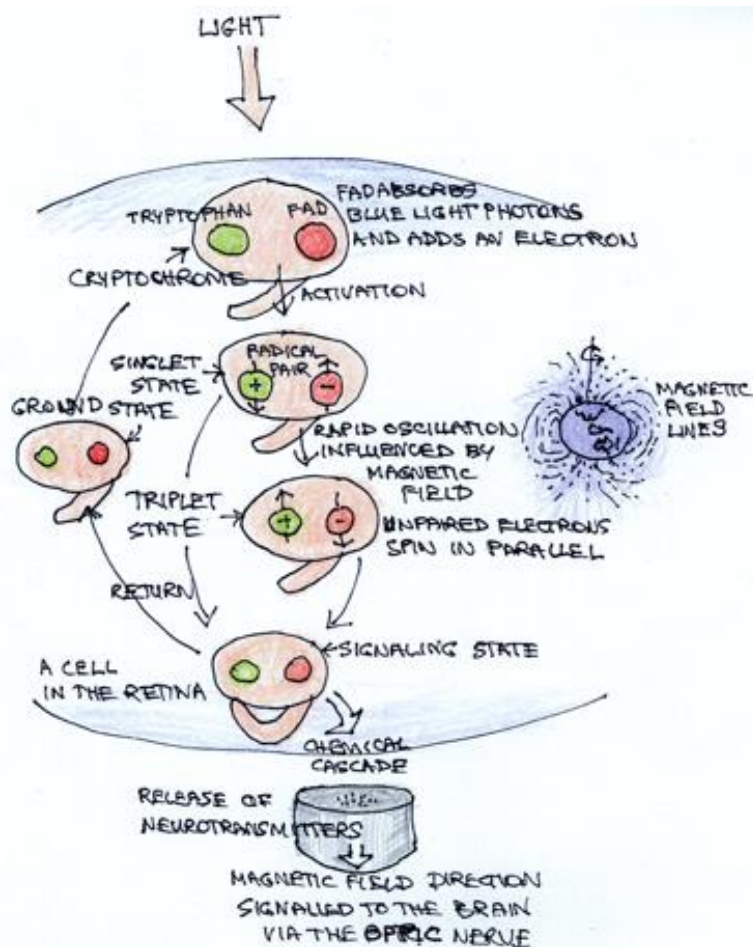 LIGHT
TRYPTOPHAN
FAD
FAD ABSORBS
BLUE LIGHT PHOTONS
AND ADDS AN ELECTRON
CRYPTOCHROME
ACTIVATION
SINGLET
STATE
RADICAL
PAIR
+
-
GROUND STATE
RAPID OSCILLATION
INFLUENCED BY
MAGNETIC
FIELD
MAGNETIC
FIELD
LINES
TRIPLET
STATE
+
-
UNPAIRED ELECTRONS
SPIN IN PARALLEL
RETURN
SIGNALING STATE
A CELL
IN THE RETINA
CHEMICAL
CASCADE
RELEASE OF
NEUROTRANSMITTERS
MAGNETIC FIELD DIRECTION
SIGNALLED TO THE BRAIN
VIA THE OPTIC NERVE